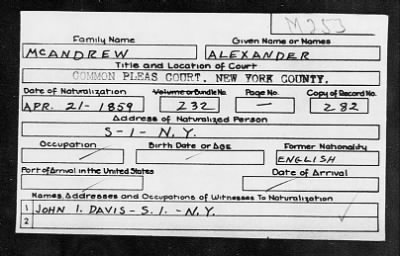 M253
Family Name Given Name or Names
MCANDREW ALEXANDER
Title and Location of Court
COMMON PLEAS COURT, NEW YORK COUNTY.
Date of Naturalization Volume or Bundle No. Page No. Copy of Record No.
APR. 21- 1859 232 — 282
Address of Naturalized Person
S-I- N.Y.
Occupation Birth Date or Age Former Nationality
ENGLISH
Port of Arrival in the United States Date of Arrival
Names, Addresses and Occupations of Witnesses To Naturalization
1 JOHN I. DAVIS- S.I. -N.Y.
2